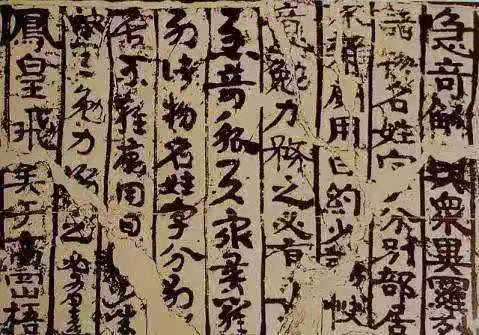 急奇觚與衆異羅
諸物名姓字分別部居
不雜厠用日約少快
意勉力務之必有
急奇觚衆異羅
列諸物名姓字分別
居不雜厠用日
勉力務之必
鳳皇飛于高梧